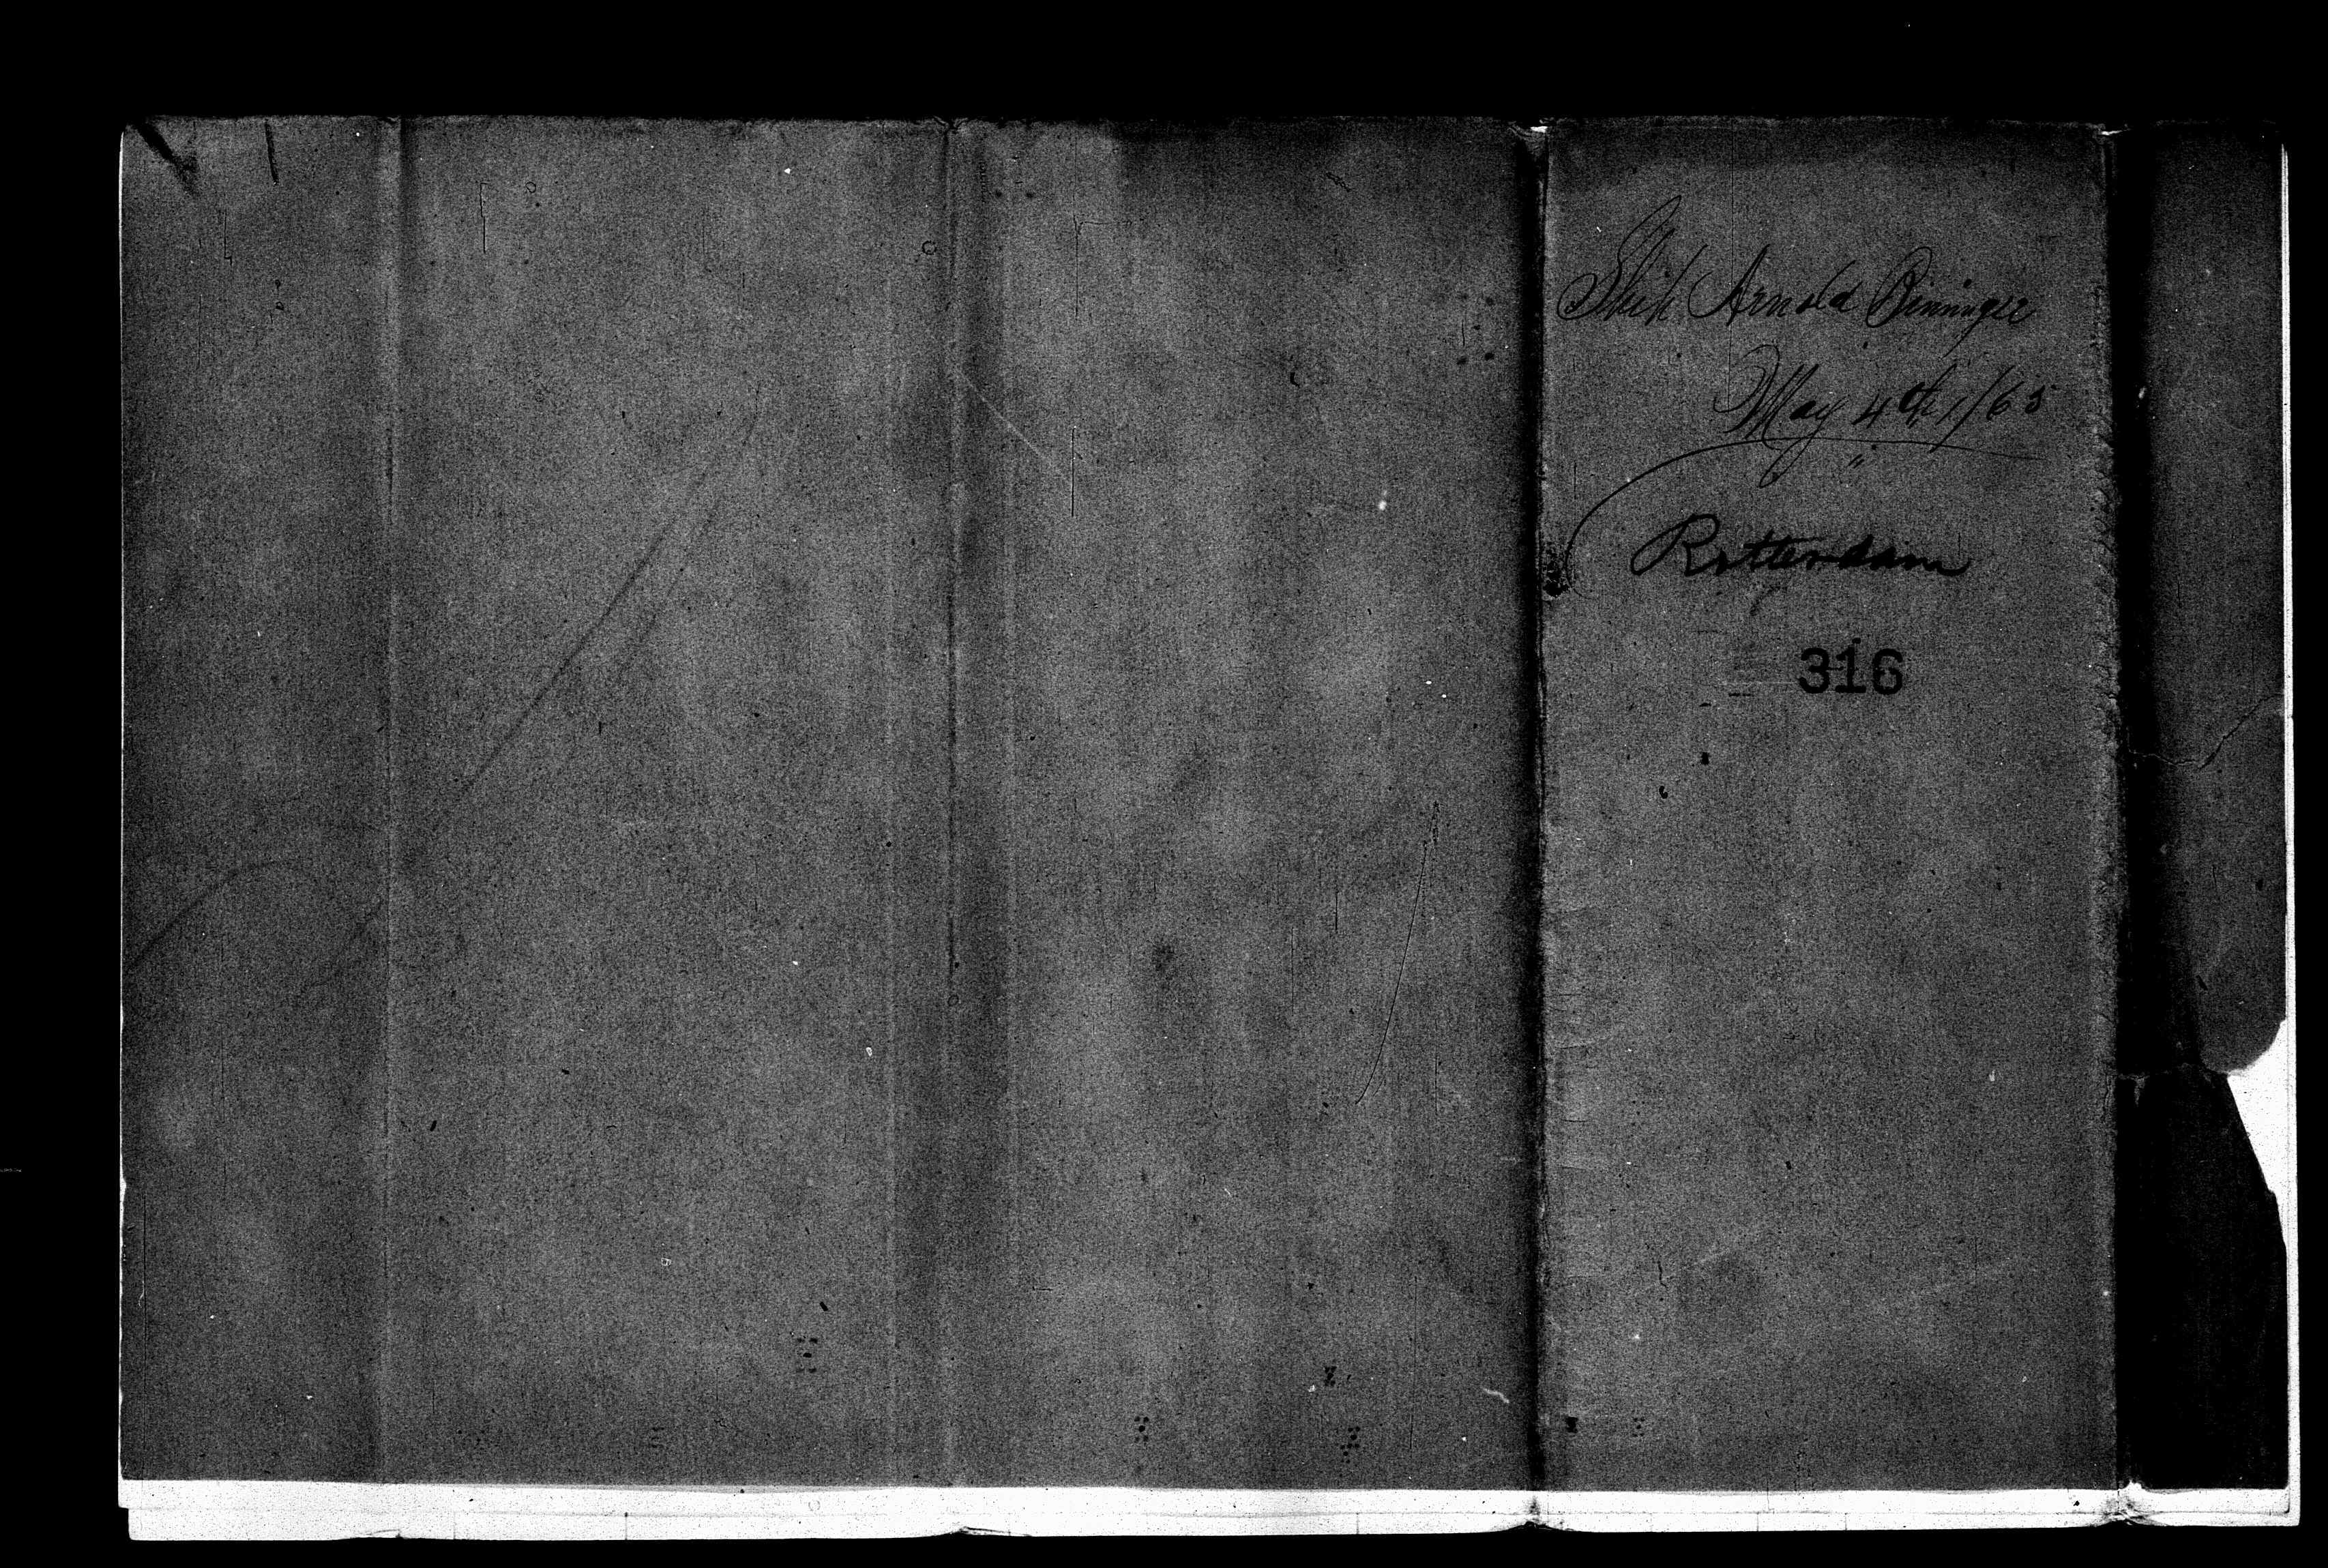 Ship Arnold Bininger
May 4th, 1/65
Rotterdam
316